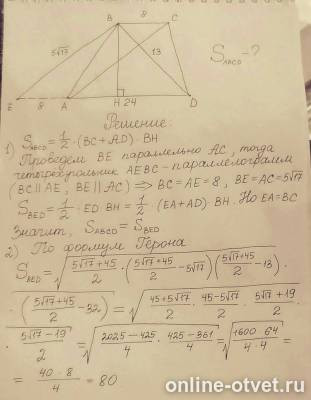 B 8 C
5√17 13 S_ABCD - ?
E 8 A H 24 D
Решение:
S_ABCD = 1/2 · (BC + AD) · BH
1) Проведем BE параллельно AC, тогда
четырехугольник AEBC - параллелограмм
(BC || AE, BE || AC) ⇒ BC = AE = 8, BE = AC = 5√17
S_BED = 1/2 · ED · BH = 1/2 · (EA + AD) · BH. Но EA = BC
Значит, S_ABCD = S_BED
2) По формуле Герона
S_BED = √((5√17+45)/2 · ((5√17+45)/2 - 5√17) ((5√17+45)/2 - 13) ·
· ((5√17+45)/2 - 32) = √((45+5√17)/2 · (45-5√17)/2 · (5√17+19)/2 ·
· (5√17-19)/2 = √((2025-425)/4 · (425-361)/4 = √((1600·64)/(4·4) =
= (40·8)/4 = 80
online-otvet.ru